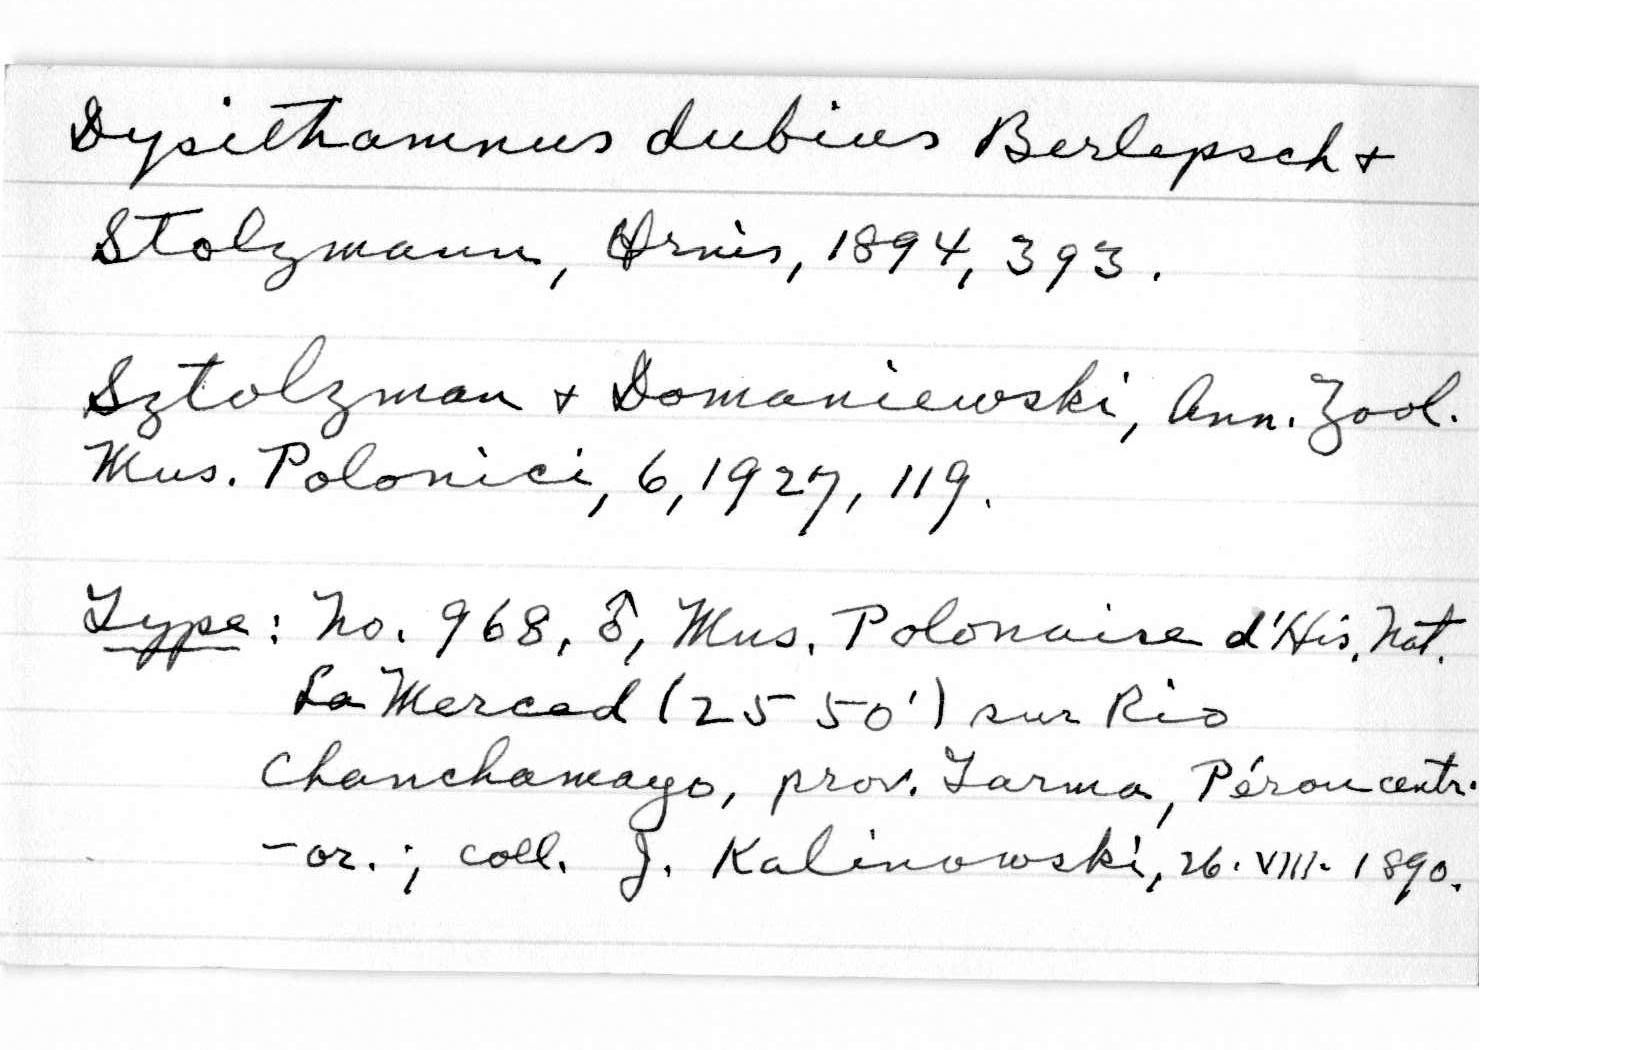 Dysithamnus dubius Berlepsch +
Stolzmann, Ornis, 1894, 393.
Sztolzman + Domaniewski, Ann. Zool.
Mus. Polonici, 6, 1927, 119.
Type: No. 968, ♂, Mus. Polonaise d'His. Nat.
La Merced (2550') sur Rio
Chanchamayo, prov. Tarma, Pérou centr.
-or.; coll. J. Kalinowski, 26.VIII.1890.